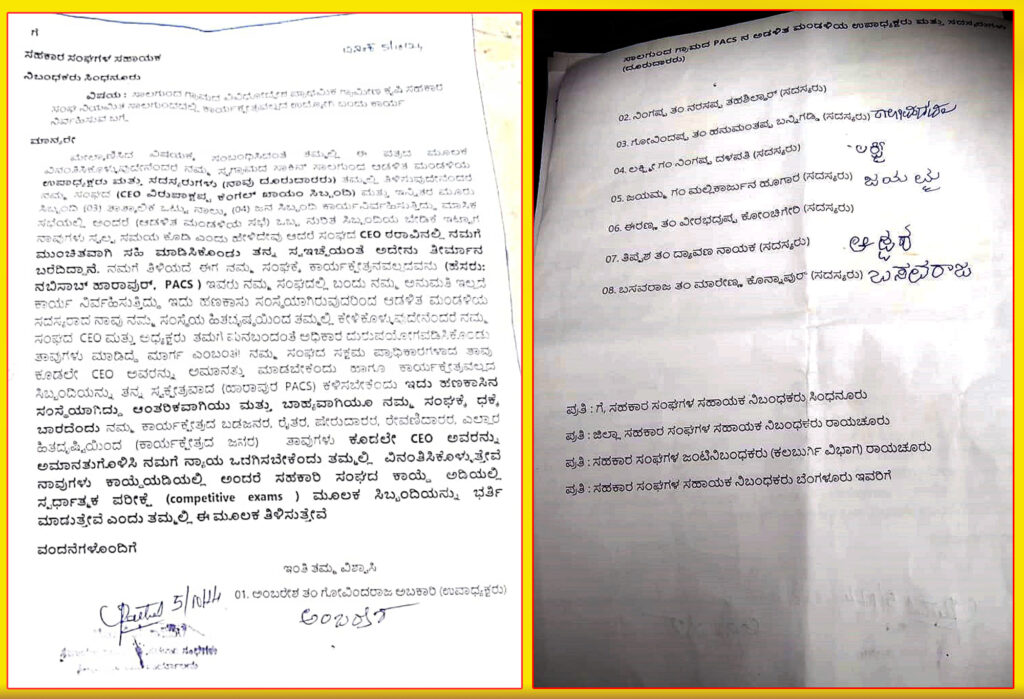 ಗೆ
ದಿನಾಂಕ 5/10/24
ಸಹಕಾರ ಸಂಘಗಳ ಸಹಾಯಕ
ನಿಬಂಧಕರು ಸಿಂಧನೂರು
ವಿಷಯ : ಸಾಲಗುಂದ ಗ್ರಾಮದ ವಿವಿಧೋದ್ದೇಶ ಪ್ರಾಥಮಿಕ ಗ್ರಾಮೀಣ ಕೃಷಿ ಸಹಕಾರ
ಸಂಘ ನಿಯಮಿತ ಸಾಲಗುಂದದಲ್ಲಿ ಕಾರ್ಯಕ್ಷೇತ್ರವಲ್ಲದ ಉದ್ಯೋಗಿ ಬಂದು ಕಾರ್ಯ
ನಿರ್ವಹಿಸುವ ಬಗ್ಗೆ
ಮಾನ್ಯರೇ
ಮೇಲ್ಕಾಣಿಸಿದ ವಿಷಯಕ್ಕೆ ಸಂಬಂಧಿಸಿದಂತೆ ತಮ್ಮಲ್ಲಿ ಈ ಪತ್ರದ ಮೂಲಕ
ವಿನಂತಿಸಿಕೊಳ್ಳುವುದೇನೆಂದರೆ ನಮ್ಮ ಸ್ವಗ್ರಾಮದ ಸಾಕಿನ್ ಸಾಲಗುಂದ ಆಡಳಿತ ಮಂಡಳಿಯ
ಉಪಾಧ್ಯಕ್ಷರು ಮತ್ತು ಸದಸ್ಯರುಗಳು (ನಾವು ದೂರುದಾರರು) ತಮ್ಮಲ್ಲಿ ತಿಳಿಸುವುದೇನೆಂದರೆ
ನಮ್ಮ ಸಂಘದ (CEO ವಿರುಪಾಕ್ಷಪ್ಪ ಕಂಗಲ್ ಖಾಯಂ ಸಿಬ್ಬಂದಿ) ಮತ್ತು ಇನ್ನಿತರ ಮೂರು
ಸಿಬ್ಬಂದಿ (03) ತಾತ್ಕಾಲಿಕ ಒಟ್ಟು ನಾಲ್ಕು (04) ಜನ ಸಿಬ್ಬಂದಿ ಕಾರ್ಯನಿರ್ವಹಿಸುತ್ತಿದ್ದು ಮಾಸಿಕ
ಸಭೆಯಲ್ಲಿ ಅಂದರೆ (ಆಡಳಿತ ಮಂಡಳಿಯ ಸಭೆ) ಒಬ್ಬ ನುರಿತ ಸಿಬ್ಬಂದಿಯ ಬೇಡಿಕೆ ಇಟ್ಟಾಗ
ನಾವುಗಳು ಸ್ವಲ್ಪ ಸಮಯ ಕೊಡಿ ಎಂದು ಹೇಳಿದೇವು ಆದರೆ ಸಂಘದ CEO ಠರಾವಿನಲ್ಲಿ ನಮಗೆ
ಮುಂಚಿತವಾಗಿ ಸಹಿ ಮಾಡಿಸಿಕೊಂಡು ತನ್ನ ಸ್ವಇಚ್ಛೆಯಂತೆ ಅದೇನು ತೀರ್ಮಾನ
ಬರೆದಿದ್ದಾನೆ. ನಮಗೆ ತಿಳಿಯದೆ ಈಗ ನಮ್ಮ ಸಂಘಕ್ಕೆ ಕಾರ್ಯಕ್ಷೇತ್ರನವಲ್ಲದವನು (ಹೆಸರು:
ನಬಿಸಾಬ್ ಹಾರಾಪುರ್, PACS ) ಇವರು ನಮ್ಮ ಸಂಘದಲ್ಲಿ ಬಂದು ನಮ್ಮ ಅನುಮತಿ ಇಲ್ಲದೆ
ಕಾರ್ಯ ನಿರ್ವಹಿಸುತ್ತಿದ್ದು ಇದು ಹಣಕಾಸು ಸಂಸ್ಥೆಯಾಗಿರುವುದರಿಂದ ಆಡಳಿತ ಮಂಡಳಿಯ
ಸದಸ್ಯರಾದ ನಾವು ನಮ್ಮ ಸಂಸ್ಥೆಯ ಹಿತದೃಷ್ಟಿಯಿಂದ ತಮ್ಮಲ್ಲಿ ಕೇಳಿಕೊಳ್ಳುವುದೇನೆಂದರೆ ನಮ್ಮ
ಸಂಘದ CEO ಮತ್ತು ಅಧ್ಯಕ್ಷರು ತಮಗೆ ಮನಬಂದಂತೆ ಅಧಿಕಾರ ದುರುಪಯೋಗಪಡಿಸಿಕೊಂಡು
ತಾವುಗಳು ಮಾಡಿದ್ದೆ ಮಾರ್ಗ ಎಂಬಂತೆ! ನಮ್ಮ ಸಂಘದ ಸಕ್ಷಮ ಪ್ರಾಧಿಕಾರಿಗಳಾದ ತಾವು
ಕೂಡಲೇ CEO ಅವರನ್ನು ಅಮಾನತ್ತು ಮಾಡಬೇಕೆಂದು ಹಾಗೂ ಕಾರ್ಯಕ್ಷೇತ್ರವಲ್ಲದ
ಸಿಬ್ಬಂದಿಯನ್ನು ತನ್ನ ಸ್ವಕ್ಷೇತ್ರವಾದ (ಹಾರಾಪುರ PACS) ಕಳಿಸಬೇಕೆಂದು ಇದು ಹಣಕಾಸಿನ
ಸಂಸ್ಥೆಯಾಗಿದ್ದು ಆಂತರಿಕವಾಗಿಯು ಮತ್ತು ಬಾಹ್ಯವಾಗಿಯೂ ನಮ್ಮ ಸಂಘಕ್ಕೆ ಧಕ್ಕೆ
ಬಾರದೆಂದು ನಮ್ಮ ಕಾರ್ಯಕ್ಷೇತ್ರದ ಬಡಜನರ, ರೈತರ, ಷೇರುದಾರರ, ಠೇವಣಿದಾರರ, ಎಲ್ಲಾರ
ಹಿತದೃಷ್ಟಿಯಿಂದ (ಕಾರ್ಯಕ್ಷೇತ್ರದ ಜನರ) ತಾವುಗಳು ಕೂಡಲೇ CEO ಅವರನ್ನು
ಅಮಾನತುಗೊಳಿಸಿ ನಮಗೆ ನ್ಯಾಯ ಒದಗಿಸಬೇಕೆಂದು ತಮ್ಮಲ್ಲಿ ವಿನಂತಿಸಿಕೊಳ್ಳುತ್ತೇವೆ
ನಾವುಗಳು ಕಾಯ್ದೆಯದಿಯಲ್ಲಿ ಅಂದರೆ ಸಹಕಾರಿ ಸಂಘದ ಕಾಯ್ದೆ ಅದಿಯಲ್ಲಿ
ಸ್ಪರ್ಧಾತ್ಮಕ ಪರೀಕ್ಷೆ (competitive exams ) ಮೂಲಕ ಸಿಬ್ಬಂದಿಯನ್ನು ಭರ್ತಿ
ಮಾಡುತ್ತೇವೆ ಎಂದು ತಮ್ಮಲ್ಲಿ ಈ ಮೂಲಕ ತಿಳಿಸುತ್ತೇವೆ
ವಂದನೆಗಳೊಂದಿಗೆ
ಇಂತಿ ತಮ್ಮ ವಿಶ್ವಾಸಿ
01. ಅಂಬರೇಶ ತಂ ಗೋವಿಂದರಾಜ ಅಬಕಾರಿ (ಉಪಾಧ್ಯಕ್ಷರು)
5/10/24
ಅಂಬರೇಶ
ಸಾಲಗುಂದ ಗ್ರಾಮದ PACS ನ ಆಡಳಿತ ಮಂಡಳಿಯ ಉಪಾಧ್ಯಕ್ಷರು ಮತ್ತು ಸದಸ್ಯರುಗಳು
(ದೂರುದಾರರು)
02. ನಿಂಗಪ್ಪ ತಂ ನರಸಪ್ಪ ತಹಶಿಲ್ದಾರ್ (ಸದಸ್ಯರು)
03. ಗೋವಿಂದಪ್ಪ ತಂ ಹನುಮಂತಪ್ಪ ಬನ್ನಿಗಿಡ್ಡಿ (ಸದಸ್ಯರು)
04. ಲಕ್ಷ್ಮೀ ಗಂ ನಿಂಗಪ್ಪ ದಳಪತಿ (ಸದಸ್ಯರು) ಲಕ್ಷ್ಮಿ
05. ಜಯಮ್ಮ ಗಂ ಮಲ್ಲಿಕಾರ್ಜುನ ಹೂಗಾರ (ಸದಸ್ಯರು) ಜಯಮ್ಮ
06. ಈರಣ್ಣ ತಂ ವೀರಭದ್ರಪ್ಪ ಕೋಂಚಿಗೇರಿ (ಸದಸ್ಯರು)
07. ತಿಪ್ಪೇಶ ತಂ ದ್ಯಾವಣ ನಾಯಕ (ಸದಸ್ಯರು)
08. ಬಸವರಾಜ ತಂ ಮಾರೇಣ್ಣ ಕೊನ್ನಾಪುರ್ (ಸದಸ್ಯರು) ಬಸವರಾಜ
ಪ್ರತಿ : ಗೆ, ಸಹಕಾರ ಸಂಘಗಳ ಸಹಾಯಕ ನಿಬಂಧಕರು ಸಿಂಧನೂರು
ಪ್ರತಿ : ಜಿಲ್ಲಾ ಸಹಕಾರ ಸಂಘಗಳ ಸಹಾಯಕ ನಿಬಂಧಕರು ರಾಯಚೂರು
ಪ್ರತಿ : ಸಹಕಾರ ಸಂಘಗಳ ಜಂಟಿನಿಬಂಧಕರು (ಕಲಬುರ್ಗಿ ವಿಭಾಗ) ರಾಯಚೂರು
ಪ್ರತಿ : ಸಹಕಾರ ಸಂಘಗಳ ಸಹಾಯಕ ನಿಬಂಧಕರು ಬೆಂಗಳೂರು ಇವರಿಗೆ